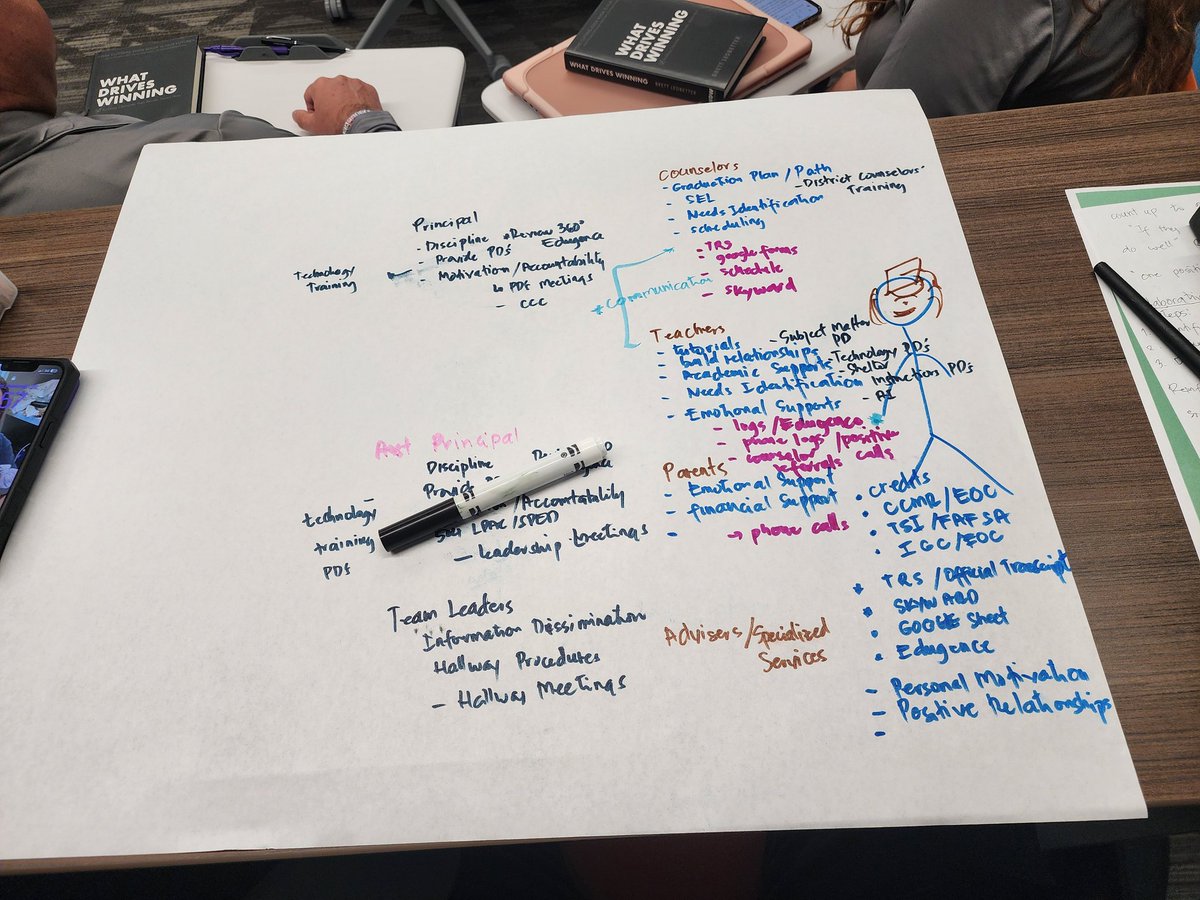 WHAT
DRIVES
WINNING
WHAT
DRIVES
WINNING
WHAT DRIVES WINNING BRETT LEDBETTER
Principal
- Discipline * Review 360°
- Provide PD's Edugence
- Motivation/Accountability
↳ PDF Meetings
- CCC
Technology
Training
Counselors
- Graduation Plan / Path
- SEL
- Needs Identification
- scheduling
- District Counselors'
Training
- TRS
- google forms
- schedule
- skyward
* Communication
Teachers
- tutorials
- build relationships
- Academic Supports
- Needs Identification
- Emotional Supports
- Subject Matter
PD
- Technology PD's
- Shelter
Instruction PD's
- AI
- logs /Edugence
- phone logs /positive
- counselor calls
referrals
Parents
- Emotional Support
- financial Support
-
→ phone calls
Asst Principal
Discipline
/Accountability
LPAC/SPED
- Leadership Meetings
technology
training
PDs
Team Leaders
Information Dissimination
Hallway Procedures
- Hallway Meetings
Advisers/Specialized
Services
• Credits
• CCMR/EOC
• TSI/FAFSA
• IGC/EOC
• TRS /Official Transcript
• SKYWARD
• GOOGLE Sheet
• Edugence
- Personal Motivation
- Positive Relationships
-
count up to
"If they
do well"
"one posi